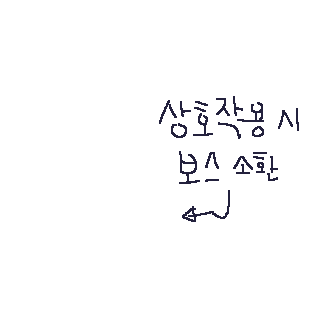 상호작용 시
보스 소환